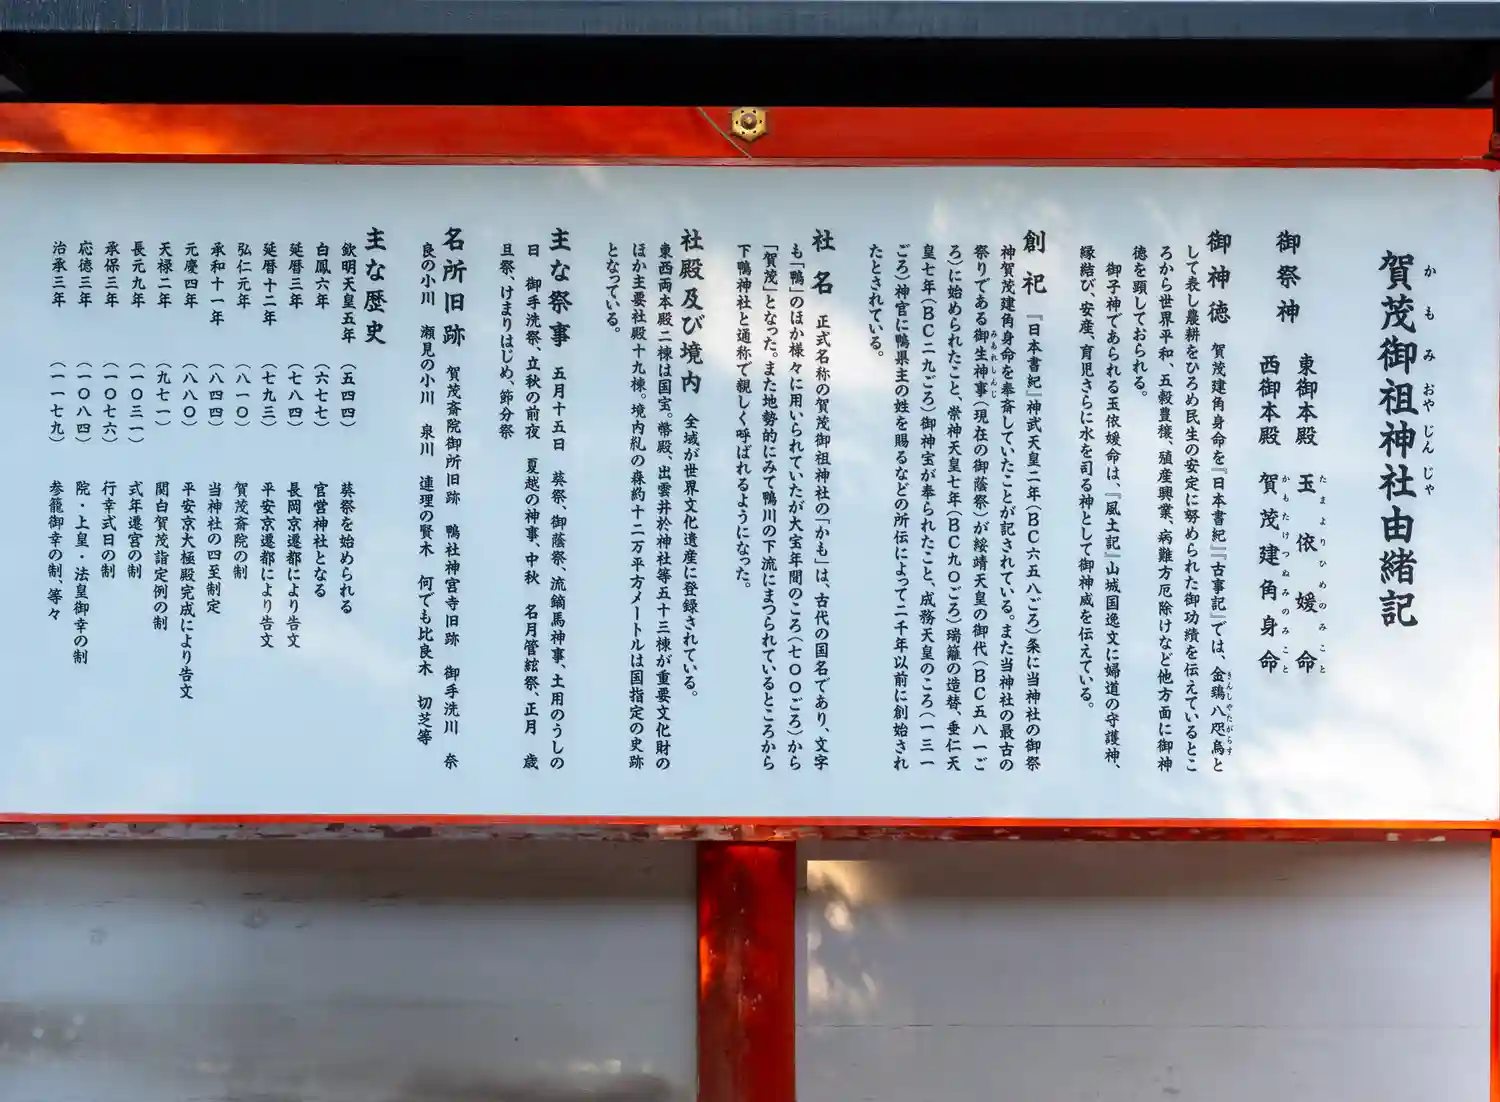 賀茂御祖神社由緒記
かもみおやじんじゃ
御祭神
東御本殿 玉依媛命
たまよりひめのみこと
西御本殿 賀茂建角身命
かもたけつぬみのみこと
御神徳 賀茂建角身命を『日本書紀』『古事記』では、金鵄八咫烏と
きんしやたがらす
して表し農耕をひろめ民生の安定に努められた御功績を伝えているとこ
ろから世界平和、五穀豊穣、殖産興業、病難方厄除けなど他方面に御神
徳を顕しておられる。
御子神であられる玉依媛命は、『風土記』山城国逸文に婦道の守護神、
縁結び、安産、育児さらに水を司る神として御神威を伝えている。
創祀 『日本書紀』神武天皇二年（BC六五八ごろ）条に当神社の御祭
神賀茂建角身命を奉斎していたことが記されている。また当神社の最古の
祭りである御生神事（現在の御蔭祭）が綏靖天皇の御代（BC五八一ご
みもれしんじ
ろ）に始められたこと、崇神天皇七年（BC九〇ごろ）瑞籬の造替、垂仁天
皇七年（BC二九ごろ）御神宝が奉られたこと、成務天皇のころ（一三一
ごろ）神官に鴨県主の姓を賜るなどの所伝によって二千年以前に創始され
たとされている。
社名 正式名称の賀茂御祖神社の「かも」は、古代の国名であり、文字
も「鴨」のほか様々に用いられていたが大宝年間のころ（七〇〇ごろ）から
「賀茂」となった。また地勢的にみて鴨川の下流にまつられているところから
下鴨神社と通称で親しく呼ばれるようになった。
社殿及び境内 全域が世界文化遺産に登録されている。
東西両本殿二棟は国宝。幣殿、出雲井於神社等五十三棟が重要文化財の
ほか主要社殿十九棟。境内糺の森約十二万平方メートルは国指定の史跡
となっている。
主な祭事 五月十五日 葵祭、御蔭祭、流鏑馬神事、土用のうしの
日 御手洗祭、立秋の前夜 夏越の神事、中秋 名月管絃祭、正月 歳
旦祭、けまりはじめ、節分祭
名所旧跡 賀茂斎院御所旧跡 鴨社神宮寺旧跡 御手洗川 奈
良の小川 瀬見の小川 泉川 連理の賢木 何でも比良木 切芝等
主な歴史
欽明天皇五年 （五四四） 葵祭を始められる
白鳳六年 （六七七） 官営神社となる
延暦三年 （七八四） 長岡京遷都により告文
延暦十二年 （七九三） 平安京遷都により告文
弘仁元年 （八一〇） 賀茂斎院の制
承和十一年 （八四四） 当神社の四至制定
元慶四年 （八八〇） 平安京大極殿完成により告文
天禄二年 （九七一） 関白賀茂詣定例の制
長元九年 （一〇三一） 式年遷宮の制
承保三年 （一〇七六） 行幸式日の制
応徳三年 （一〇八四） 院・上皇・法皇御幸の制
治承三年 （一一七九） 参籠御幸の制、等々